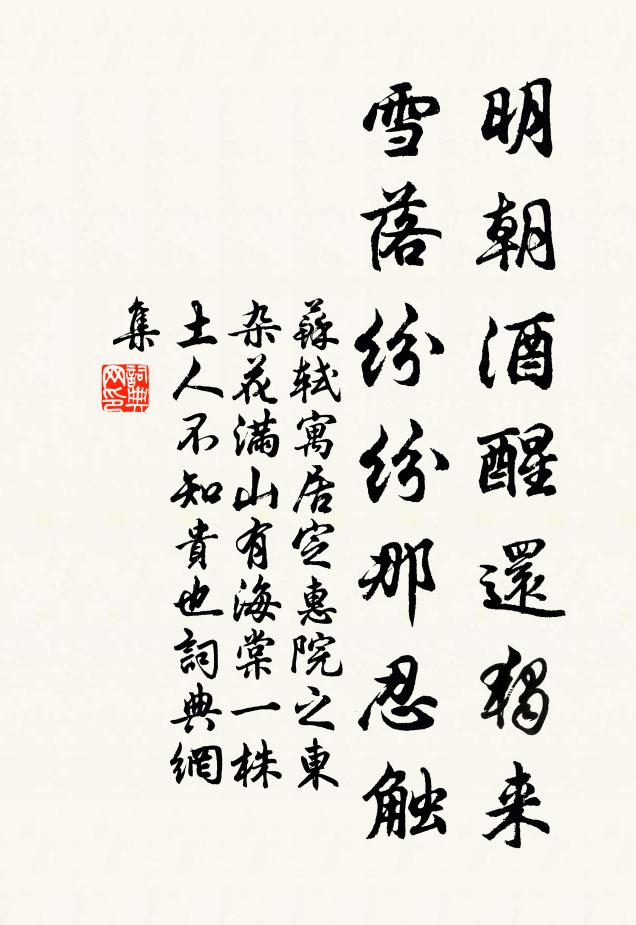 明朝酒醒還独来
雪落紛紛那忍触
蘇軾寓居定惠院之東
杂花満山有海棠一株
土人不知貴也詞典網
集
詞典网印